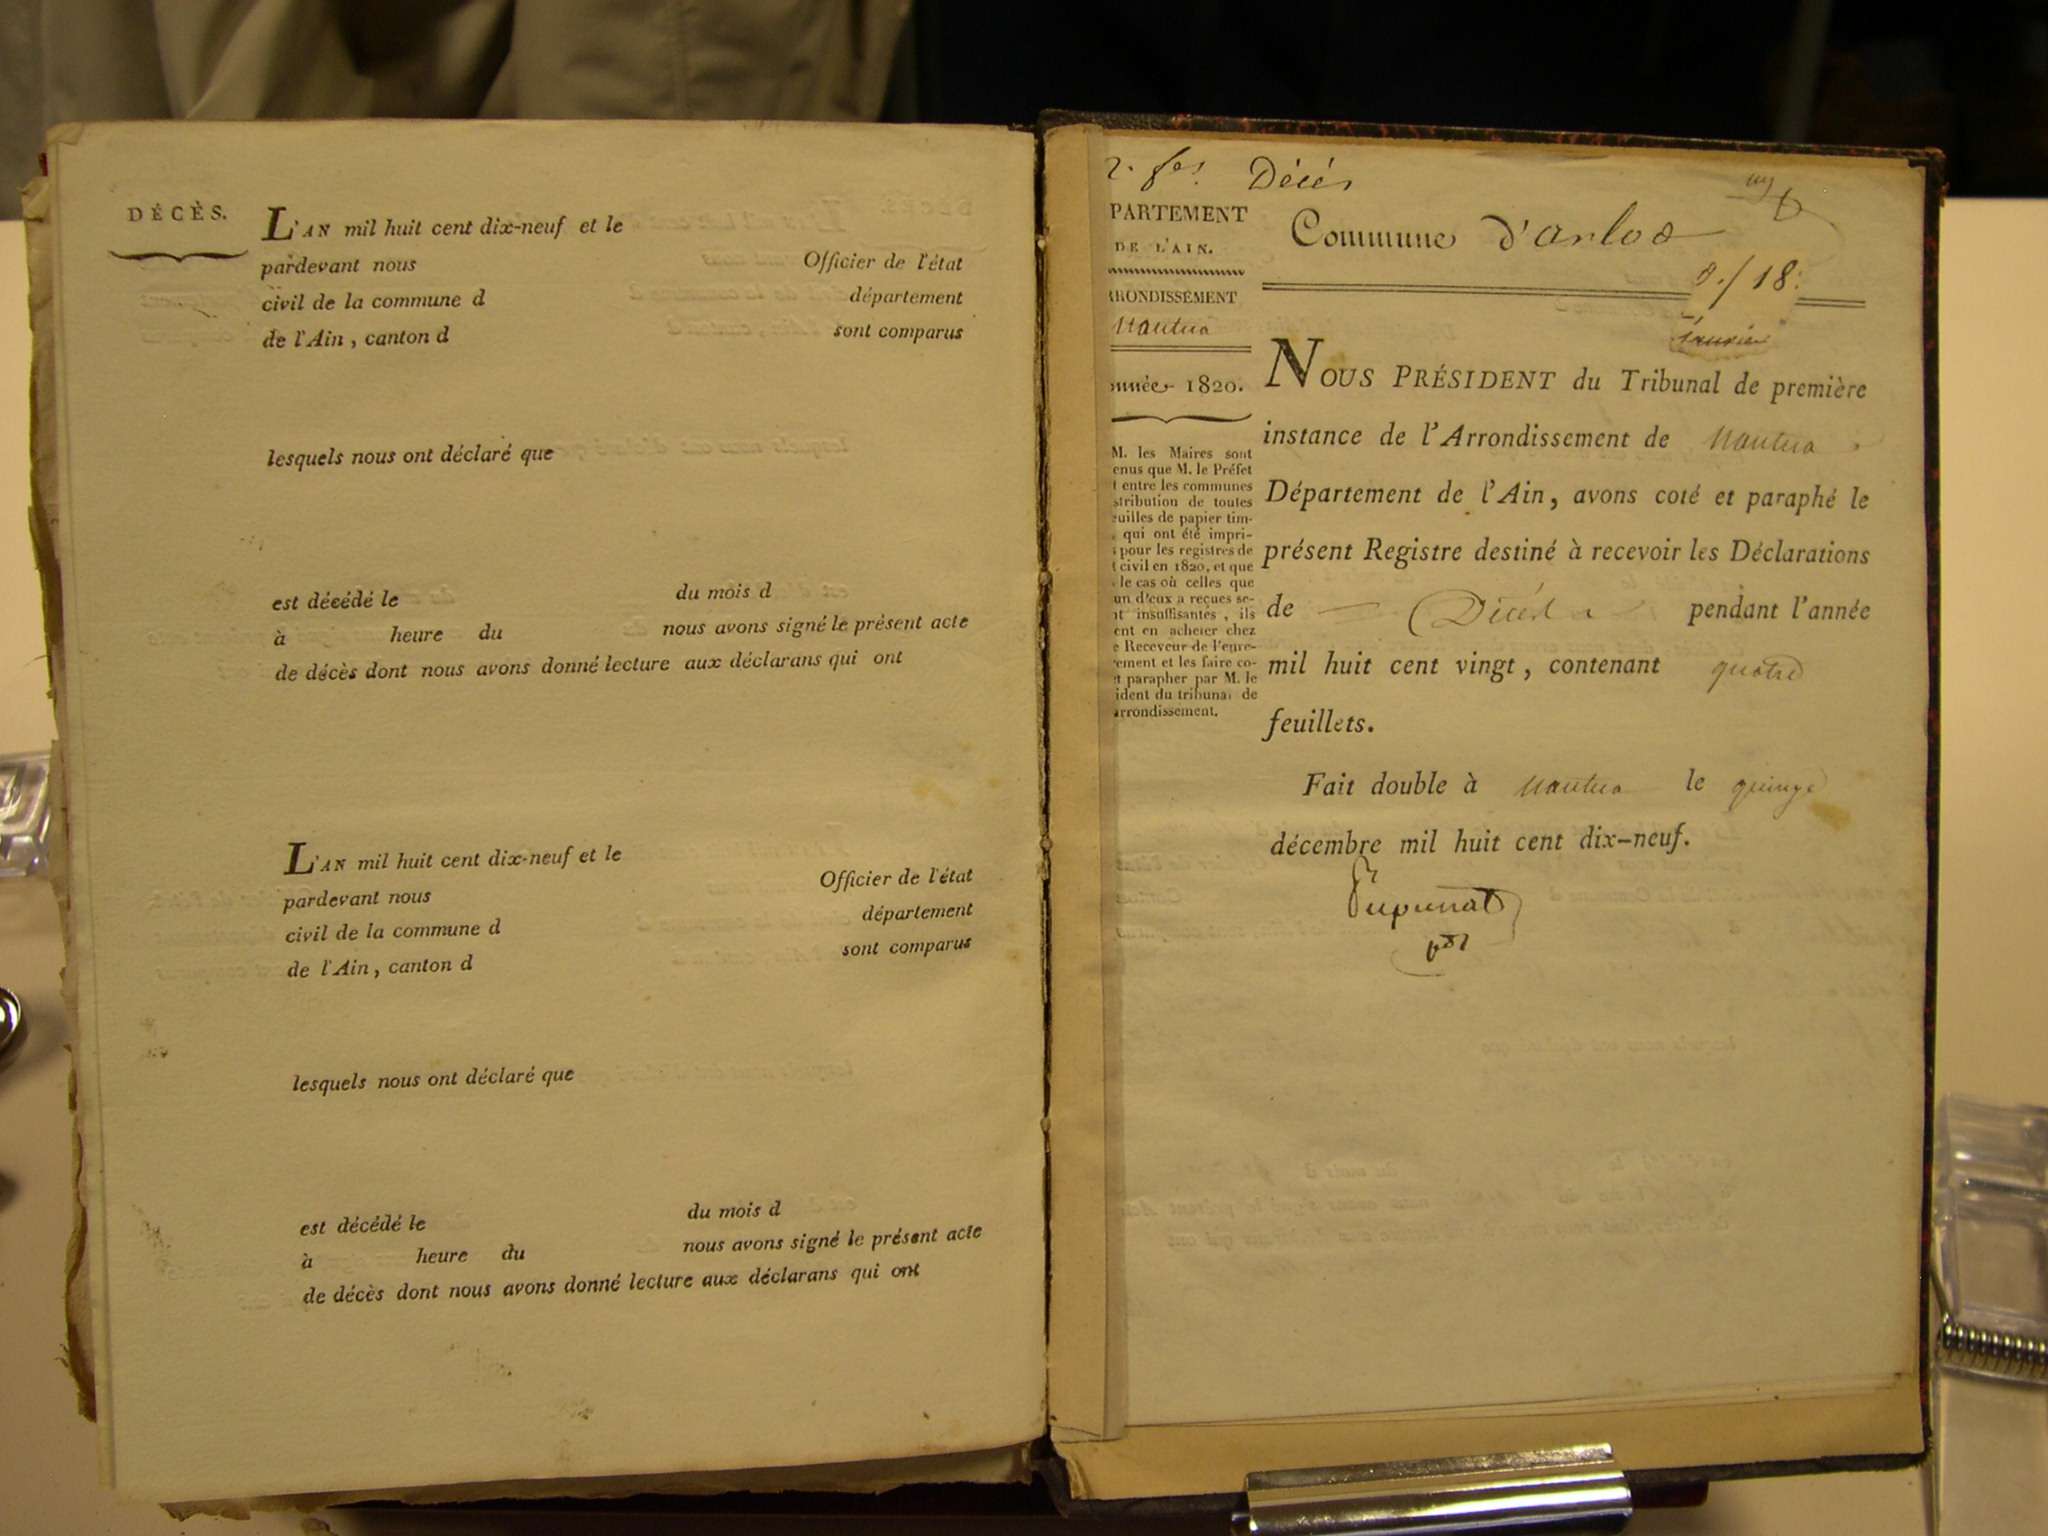 DÉCÈS.
L'AN mil huit cent dix-neuf et le
pardevant nous Officier de l'état
civil de la commune d département
de l'Ain, canton d sont comparus
lesquels nous ont déclaré que
est décédé le du mois d
à heure du nous avons signé le présent acte
de décès dont nous avons donné lecture aux déclarans qui ont
L'AN mil huit cent dix-neuf et le
pardevant nous Officier de l'état
civil de la commune d département
de l'Ain, canton d sont comparus
lesquels nous ont déclaré que
est décédé le du mois d
à heure du nous avons signé le présent acte
de décès dont nous avons donné lecture aux déclarans qui ont
Décés
PARTEMENT
DE L'AIN.
RRONDISSEMENT
Nantua
nnée 1820.
M. les Maires sont
enus que M. le Préfet
t entre les communes
stribution de toutes
euilles de papier tim-
, qui ont été impri-
s pour les registres de
t civil en 1820, et que
s le cas où celles que
un d'eux a reçues se-
nt insuffisantes, ils
ent en acheter chez
e Receveur de l'enre-
rement et les faire co-
et parapher par M. le
ident du tribunal de
arrondissement.
Commune d'arlod
9./18:
NOUS PRÉSIDENT du Tribunal de première
instance de l'Arrondissement de Nantua
Département de l'Ain, avons coté et paraphé le
présent Registre destiné à recevoir les Déclarations
de Décès pendant l'année
mil huit cent vingt, contenant quatre
feuillets.
Fait double à Nantua le quinze
décembre mil huit cent dix-neuf.